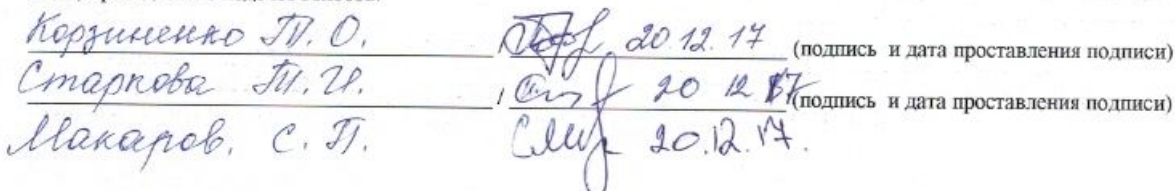 Корзиненко Т. О. 20.12.17 (подпись и дата проставления подписи)
Старкова Т. И. , 20 12 17 (подпись и дата проставления подписи)
Макаров. С. П. 20.12.17.